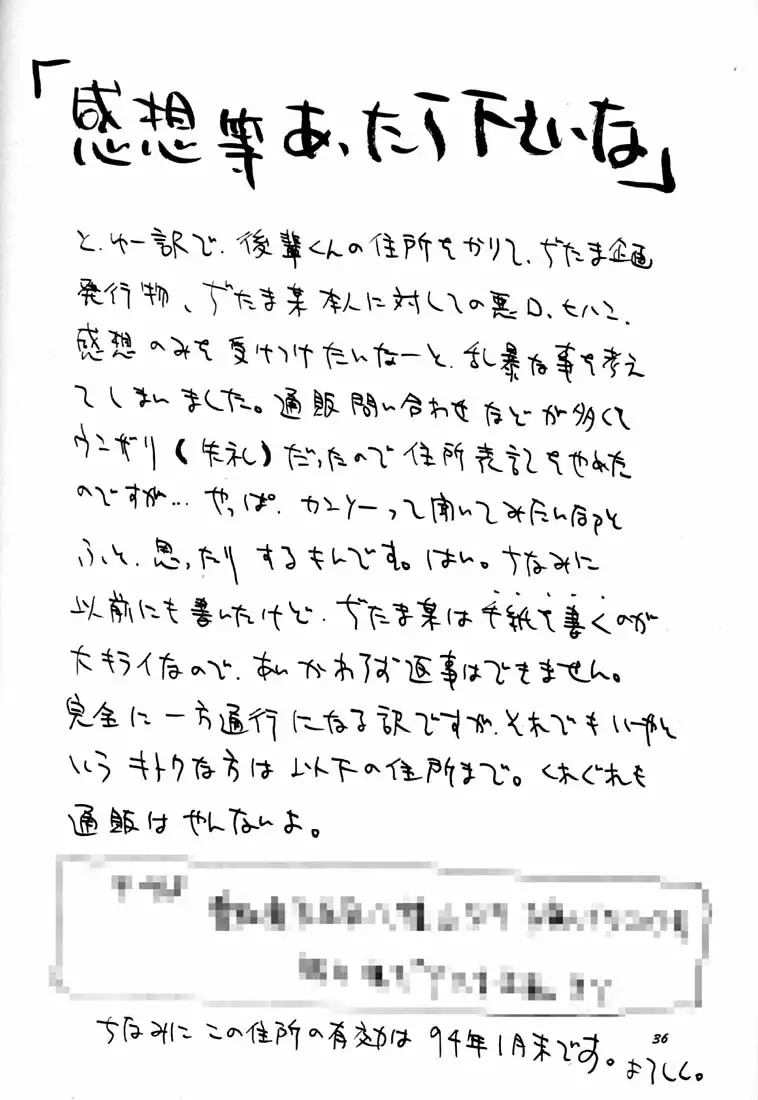 「感想等あったら下せいな」
と、ゆー訳で、後輩くんの住所をかりて、ぢたま企画
発行物、ぢたま某本人に対しての悪口、ヒハン、
感想のみを受けつけたいなーと、乱暴な事を考え
てしまいました。通販問い合わせなどが多くて
ウンザリ(失礼)だったので住所表記をやめた
のですが… やっぱ、カンソーって聞いてみたい
ふと、思ったりするもんです。はい。ちなみに
以前にも書いたけど、ぢたま某は手紙を書くのが
大キライなので、あいかわらず返事はできません。
完全に一方通行になる訳ですが、それでもいーやと
いうキトクな方は以下の住所まで。くれぐれも
通販はやんないよ。
ちなみにこの住所の有効は94年1月末です。よろしく。
36